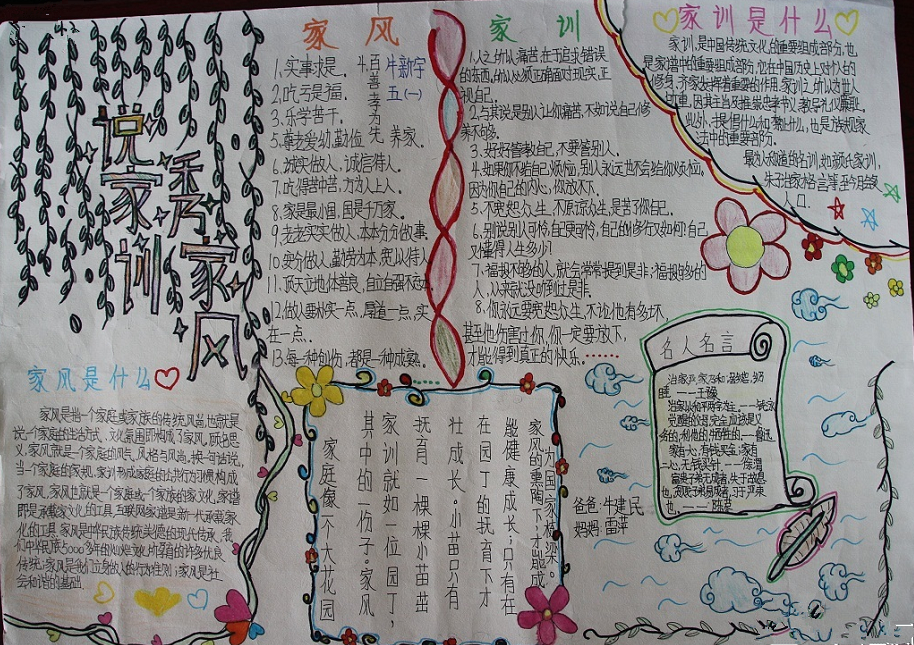 说家训
秀家风
家风
1.实事求是.
2.吃亏是福.
3.乐学苦干.
4.百善孝为先
牛新宇
五(一)
5.尊老爱幼,勤俭养家.
6.诚实做人,诚信待人.
7.吃得苦中苦,方为人上人.
8.家是最小国,国是千万家.
9.老老实实做人,本本分分做事.
10.安分做人,勤劳为本,宽以待人
11.顶天立地,体善良,自立自强不求
12.做人要朴实一点,厚道一点,实
在一点.
13.每一种创伤,都是一种成熟.
家训
1.人之所以痛苦,在于追求错误
的东西,所以必须正确面对现实,正
视自己.
2.与其说是别人让你痛苦,不如说自己修
养不够.
3.好好管教自己,不要管别人.
4.如果你不给自己烦恼,别人永远也不会给你烦恼,
因为你自己的内心,你放不下.
5.不宽恕众生,不原谅众生,是苦了你自己.
6.别说别人可怜,自己更可怜,自己的修行又如何?自己
又懂得人生多少?
7.福报不够的人,就会常常听到是非;福报够多的
人,从来就没听到过是非.
8.你永远要宽恕众生,不论他有多坏,
甚至他伤害过你,你一定要放下,
才能得到真正的快乐......
家训是什么
家训,是中国传统文化的重要组成部分,也
是家谱中的重要组成部分,它在中国历史上对个人的
修身、齐家发挥着重要的作用.家训之所以为世人
所重,因其主旨乃推崇忠孝节义、教导礼仪廉耻.
此外,提倡什么和禁止什么,也是族规家
法中的重要部分.
最为人知道的名训,如颜氏家训,
朱子治家格言等至今脍炙
人口.
家风是什么
家风是指一个家庭或家族的传统风尚,也就是
说一个家庭的生活方式、文化氛围即构成了家风,顾名思
义,家风就是一个家庭的风气、风格与风尚.换句话说,
当一个家庭的家规、家训形成家庭的共同行为习惯构成
了家风,家风也就是一个家庭或一个家族的家文化.家谱
即是承载家文化的工具,互联网家谱是新一代承载家
化的工具.家风是中华民族传统美德的现代传承,我
们中华民族5000多年的灿烂文化,所孕育的许多优良
传统;家风是他们立身做人的行为准则;家风是社
会和谐的基础.
家庭像一个大花园
其中的一份子。家风
家训就如一位园丁,
抚育一棵棵小苗茁
壮成长。小苗只有
在园丁的抚育下才
能健康成长;只有在
家风的熏陶下,才能成
为国家栋梁。
爸爸:牛建民
妈妈:雷萍
名人名言